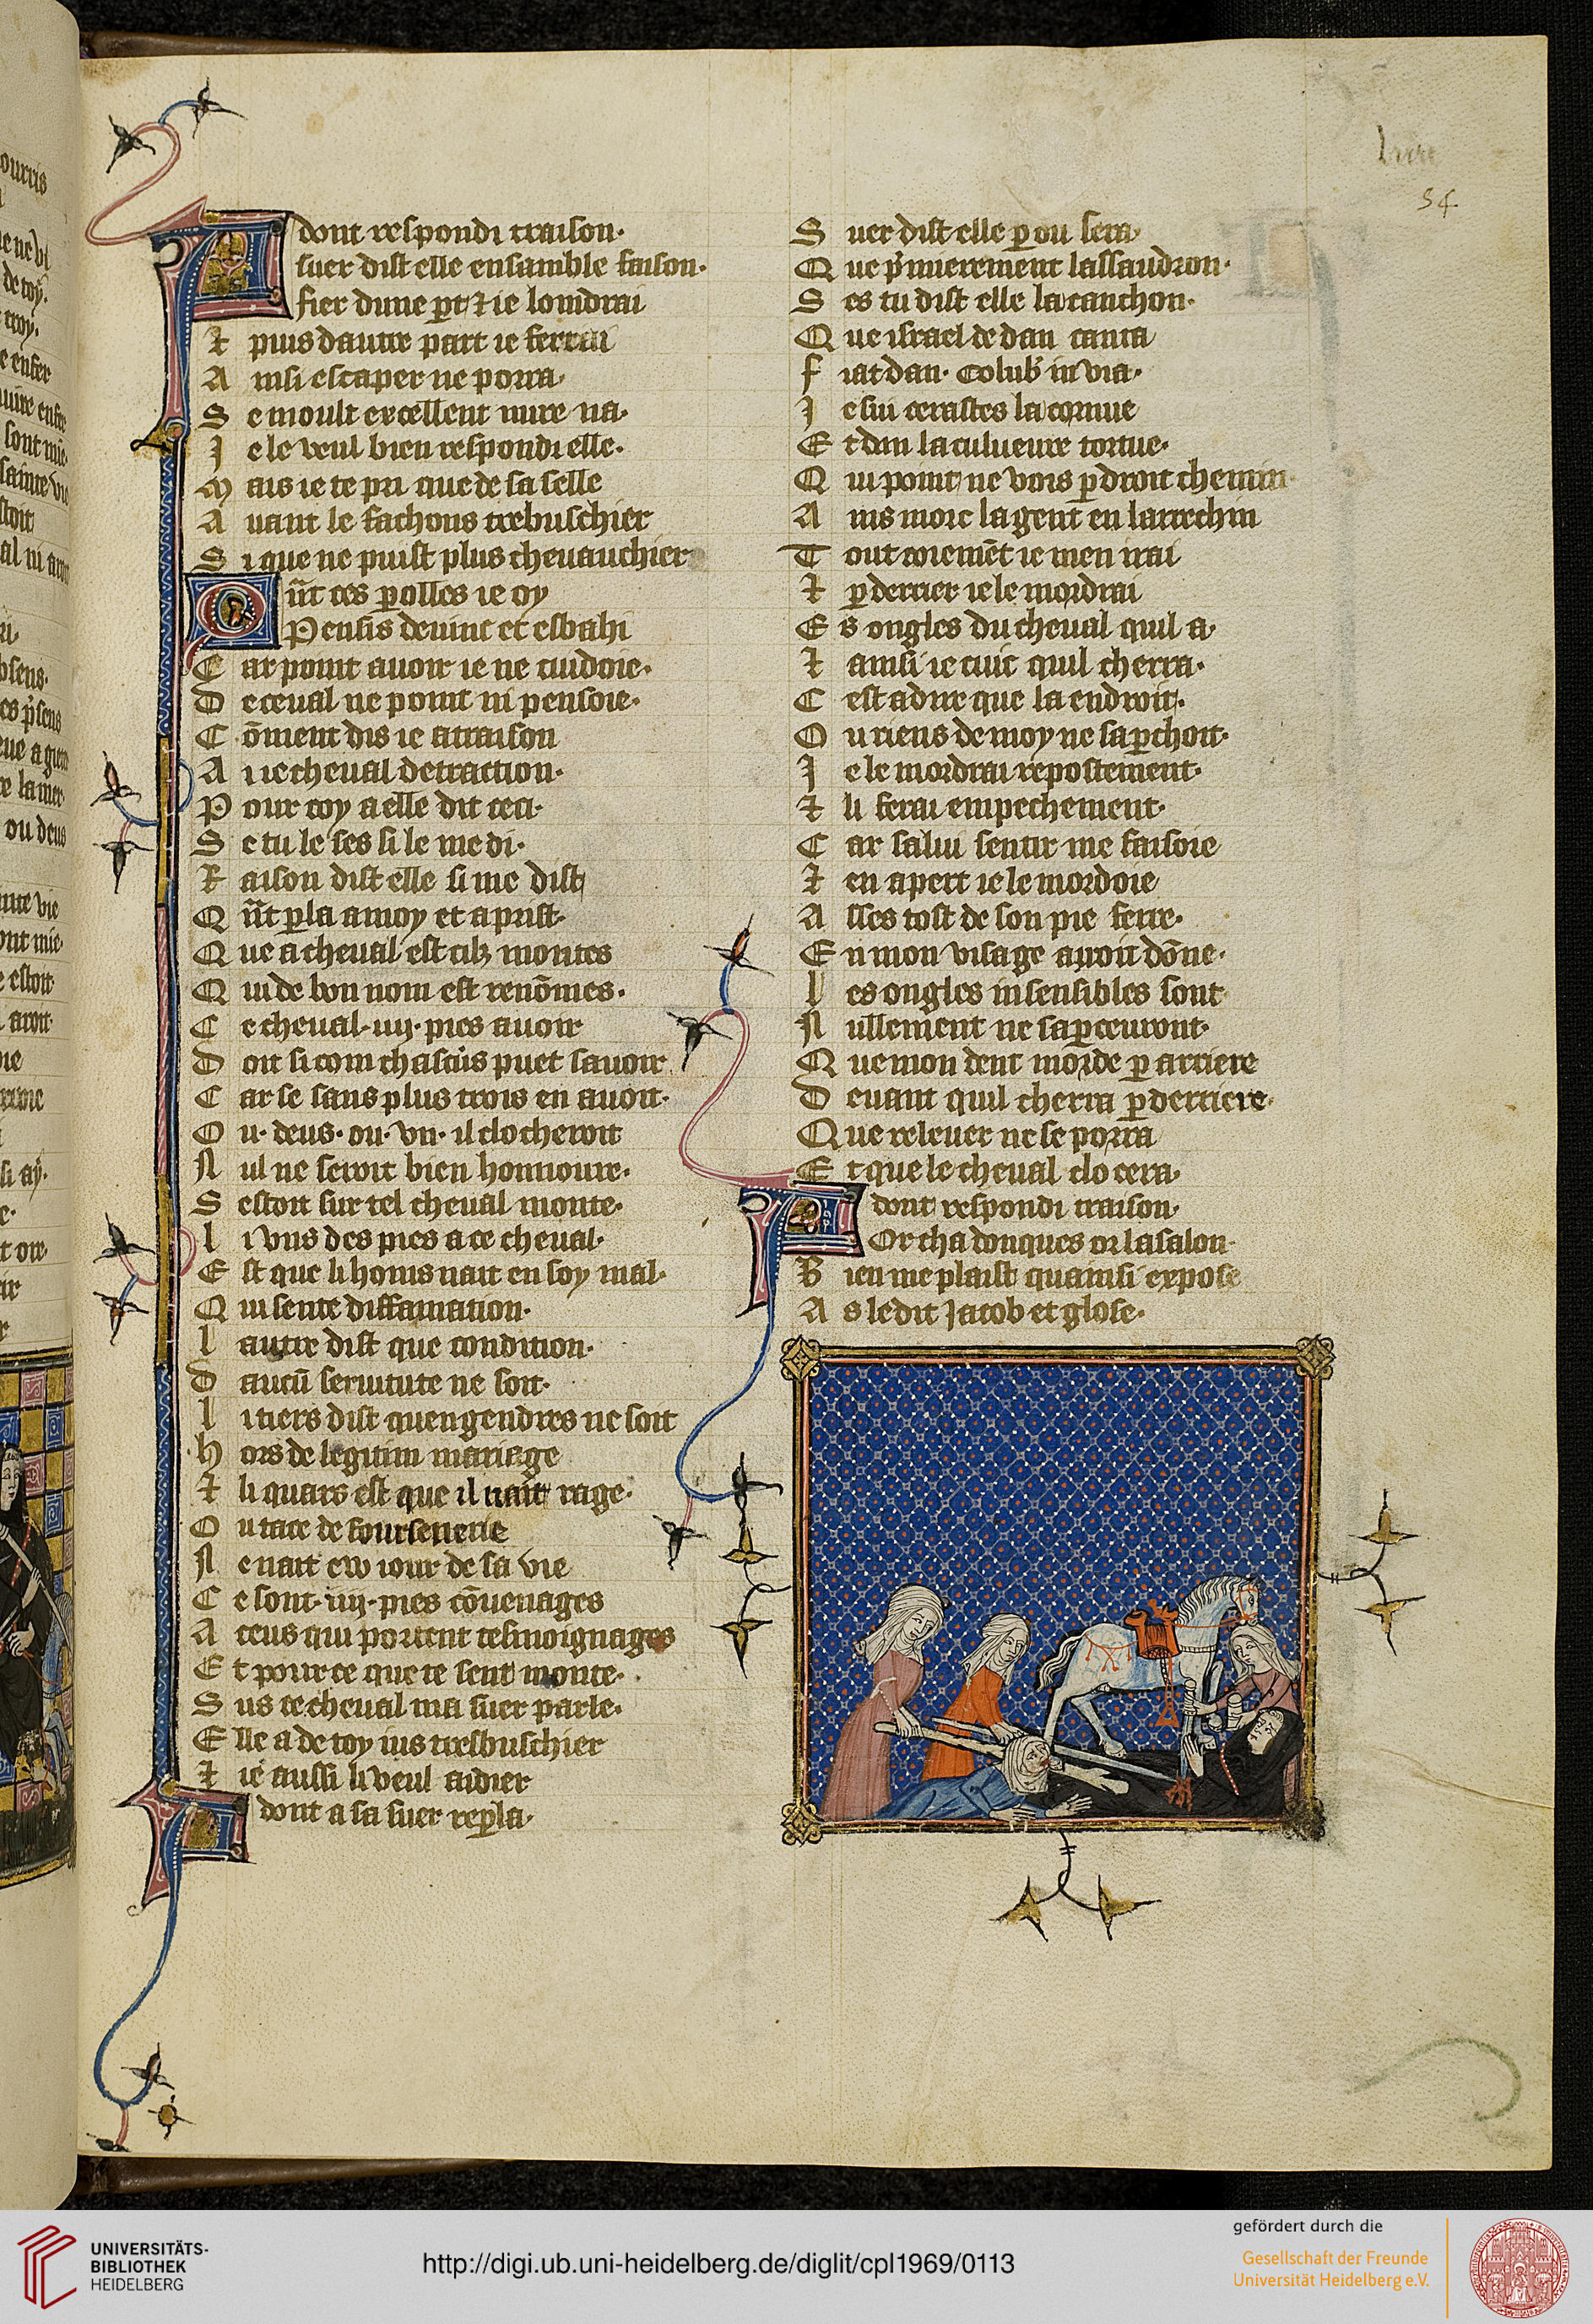 Adont respondi traison.
suer dist elle ensamble faison.
fier dune pt ⁊ ie lomdrai
Et puis dautre part ie ferrai
Ainsi escaper ne porra.
Se moult excellent mire na.
Je le veul bien respondi elle.
Mais ie te pri que de sa selle
Auant le fachons trebuschier
Si que ne puist plus cheuauchier
Qñt ces polles ie oy
Pensis deuint et esbahi
Car point auoir ie ne cuidoie.
De ceual ne point ni pensoie.
Cõment dis ie a traison
Ai ie cheual detraction.
Pour toy a elle dit ceci.
Se tu le ses si le me di.
Raison dist elle si me dist
Qñt pla a moy et aprist.
Que a cheual est cilz montes
Qui de bon nom est renõmes.
Ce cheual .iiij. pies auoir
Doit si com chascũs puet sauoir
Car se sans plus trois en auoit.
Ou. deus. ou. vn. il clocheroit
Nul ne seroit bien honnoure.
Sestoit sur tel cheual monte.
Li vns des pies a ce cheual.
Est que li homs nait en soy mal.
Qui sente diffamation.
Lautre dist que condition.
Daucũ seruitute ne soit.
Li tiers dist quengendres ne soit
Hors de legitim mariage
Et li quars est que il nait rage.
Ou tace de foursenerie
Ne nait ew iour de sa vie
Ce sont .iiij. pies cõuenages
A ceus qui portent tesmoignages
Et pour ce que te sent monte.
Sus ce cheual ma suer parle.
Elle a de toy ius tresbuschier
Et ie aussi li veul aidier
Adont a sa suer repla.
Suer dist elle p ou sera.
Que pmierement lassaudron.
Ses tu dist elle la canchon.
Que israel de dan canta
fiat dan. Colub in via.
Je sui cerastes la cornue
Et dan la culueure tortue.
Qui point ne vois p droit chemin.
Ains morc la gent en larrechin
Tout coiemẽt ie men irai
Et p derrier ie le mordrai
Es ongles du cheual quil a.
Et ainsi ie cuic quil cherra.
Cest a dire que la endroit.
Ou riens de moy ne sapchoit.
Je le mordrai repostement.
Et li ferai empechement.
Car sa lui sentir me faisoie
Et en apert ie le mordoie
Asses tost de son pie ferre.
En mon visage auoit dõne.
Les ongles insensibles sont
Nullement ne sapceuront.
Que mon dent morde p arriere
Deuant quil cherra p derriere.
Que releuer ne se porra
Et que le cheual clocera.
Adont respondi traison.
Or cha donques or la salon.
Bien me plaist quainsi expose
As le dit Jacob et glose.
54
UNIVERSITÄTS-
BIBLIOTHEK
HEIDELBERG
http://digi.ub.uni-heidelberg.de/diglit/cpl1969/0113
gefördert durch die
Gesellschaft der Freunde
Universität Heidelberg e.V.